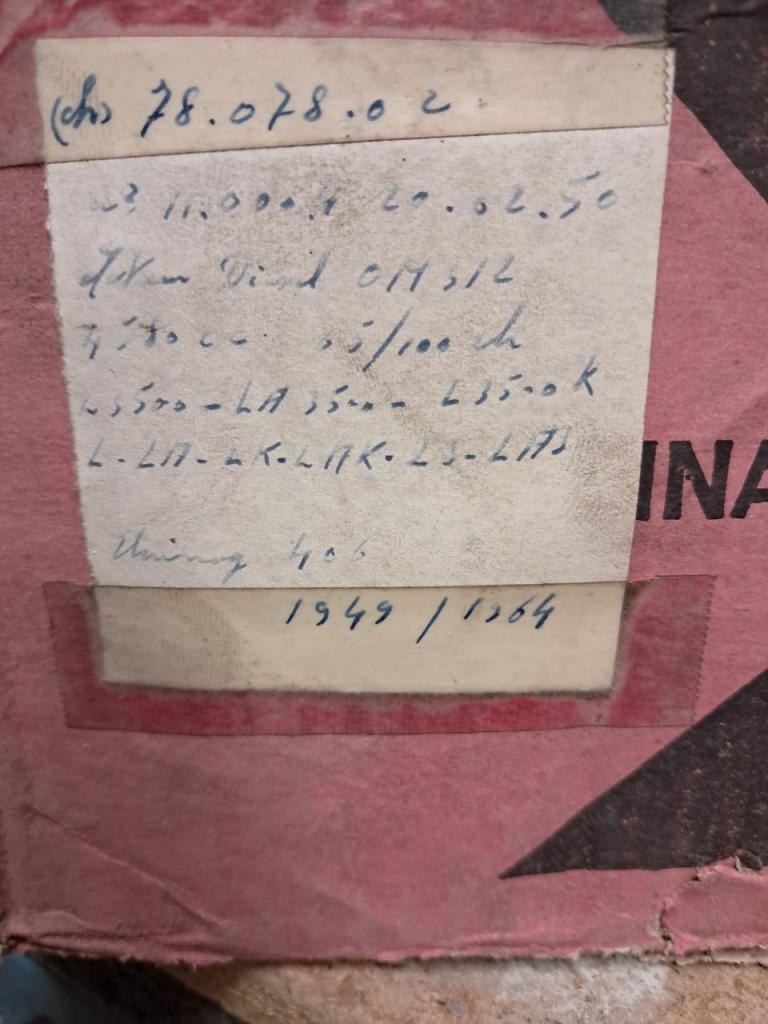 (ch) 78.078.02
11.000.4 20.02.50
Diesel OM 312
4580 cc /100 ch
L3500 - LA 3500 - L3500K
L - LA - LK - LAK - LS - LAS
INA
Unimog 406
1949 / 1964